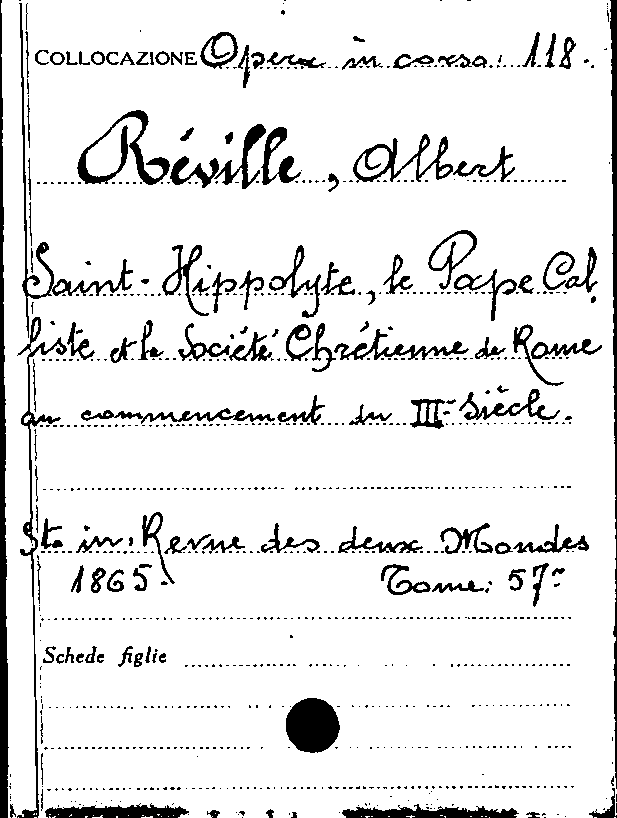 COLLOCAZIONE Opera in corso: 118.
Réville, Albert
Saint-Hippolyte, le Pape Cal
liste et la Société Chrétienne de Rome
au commencement du IIIe Siècle.
Sta in: Revue des deux Mondes
1865. Tome: 57e
Schede figlie